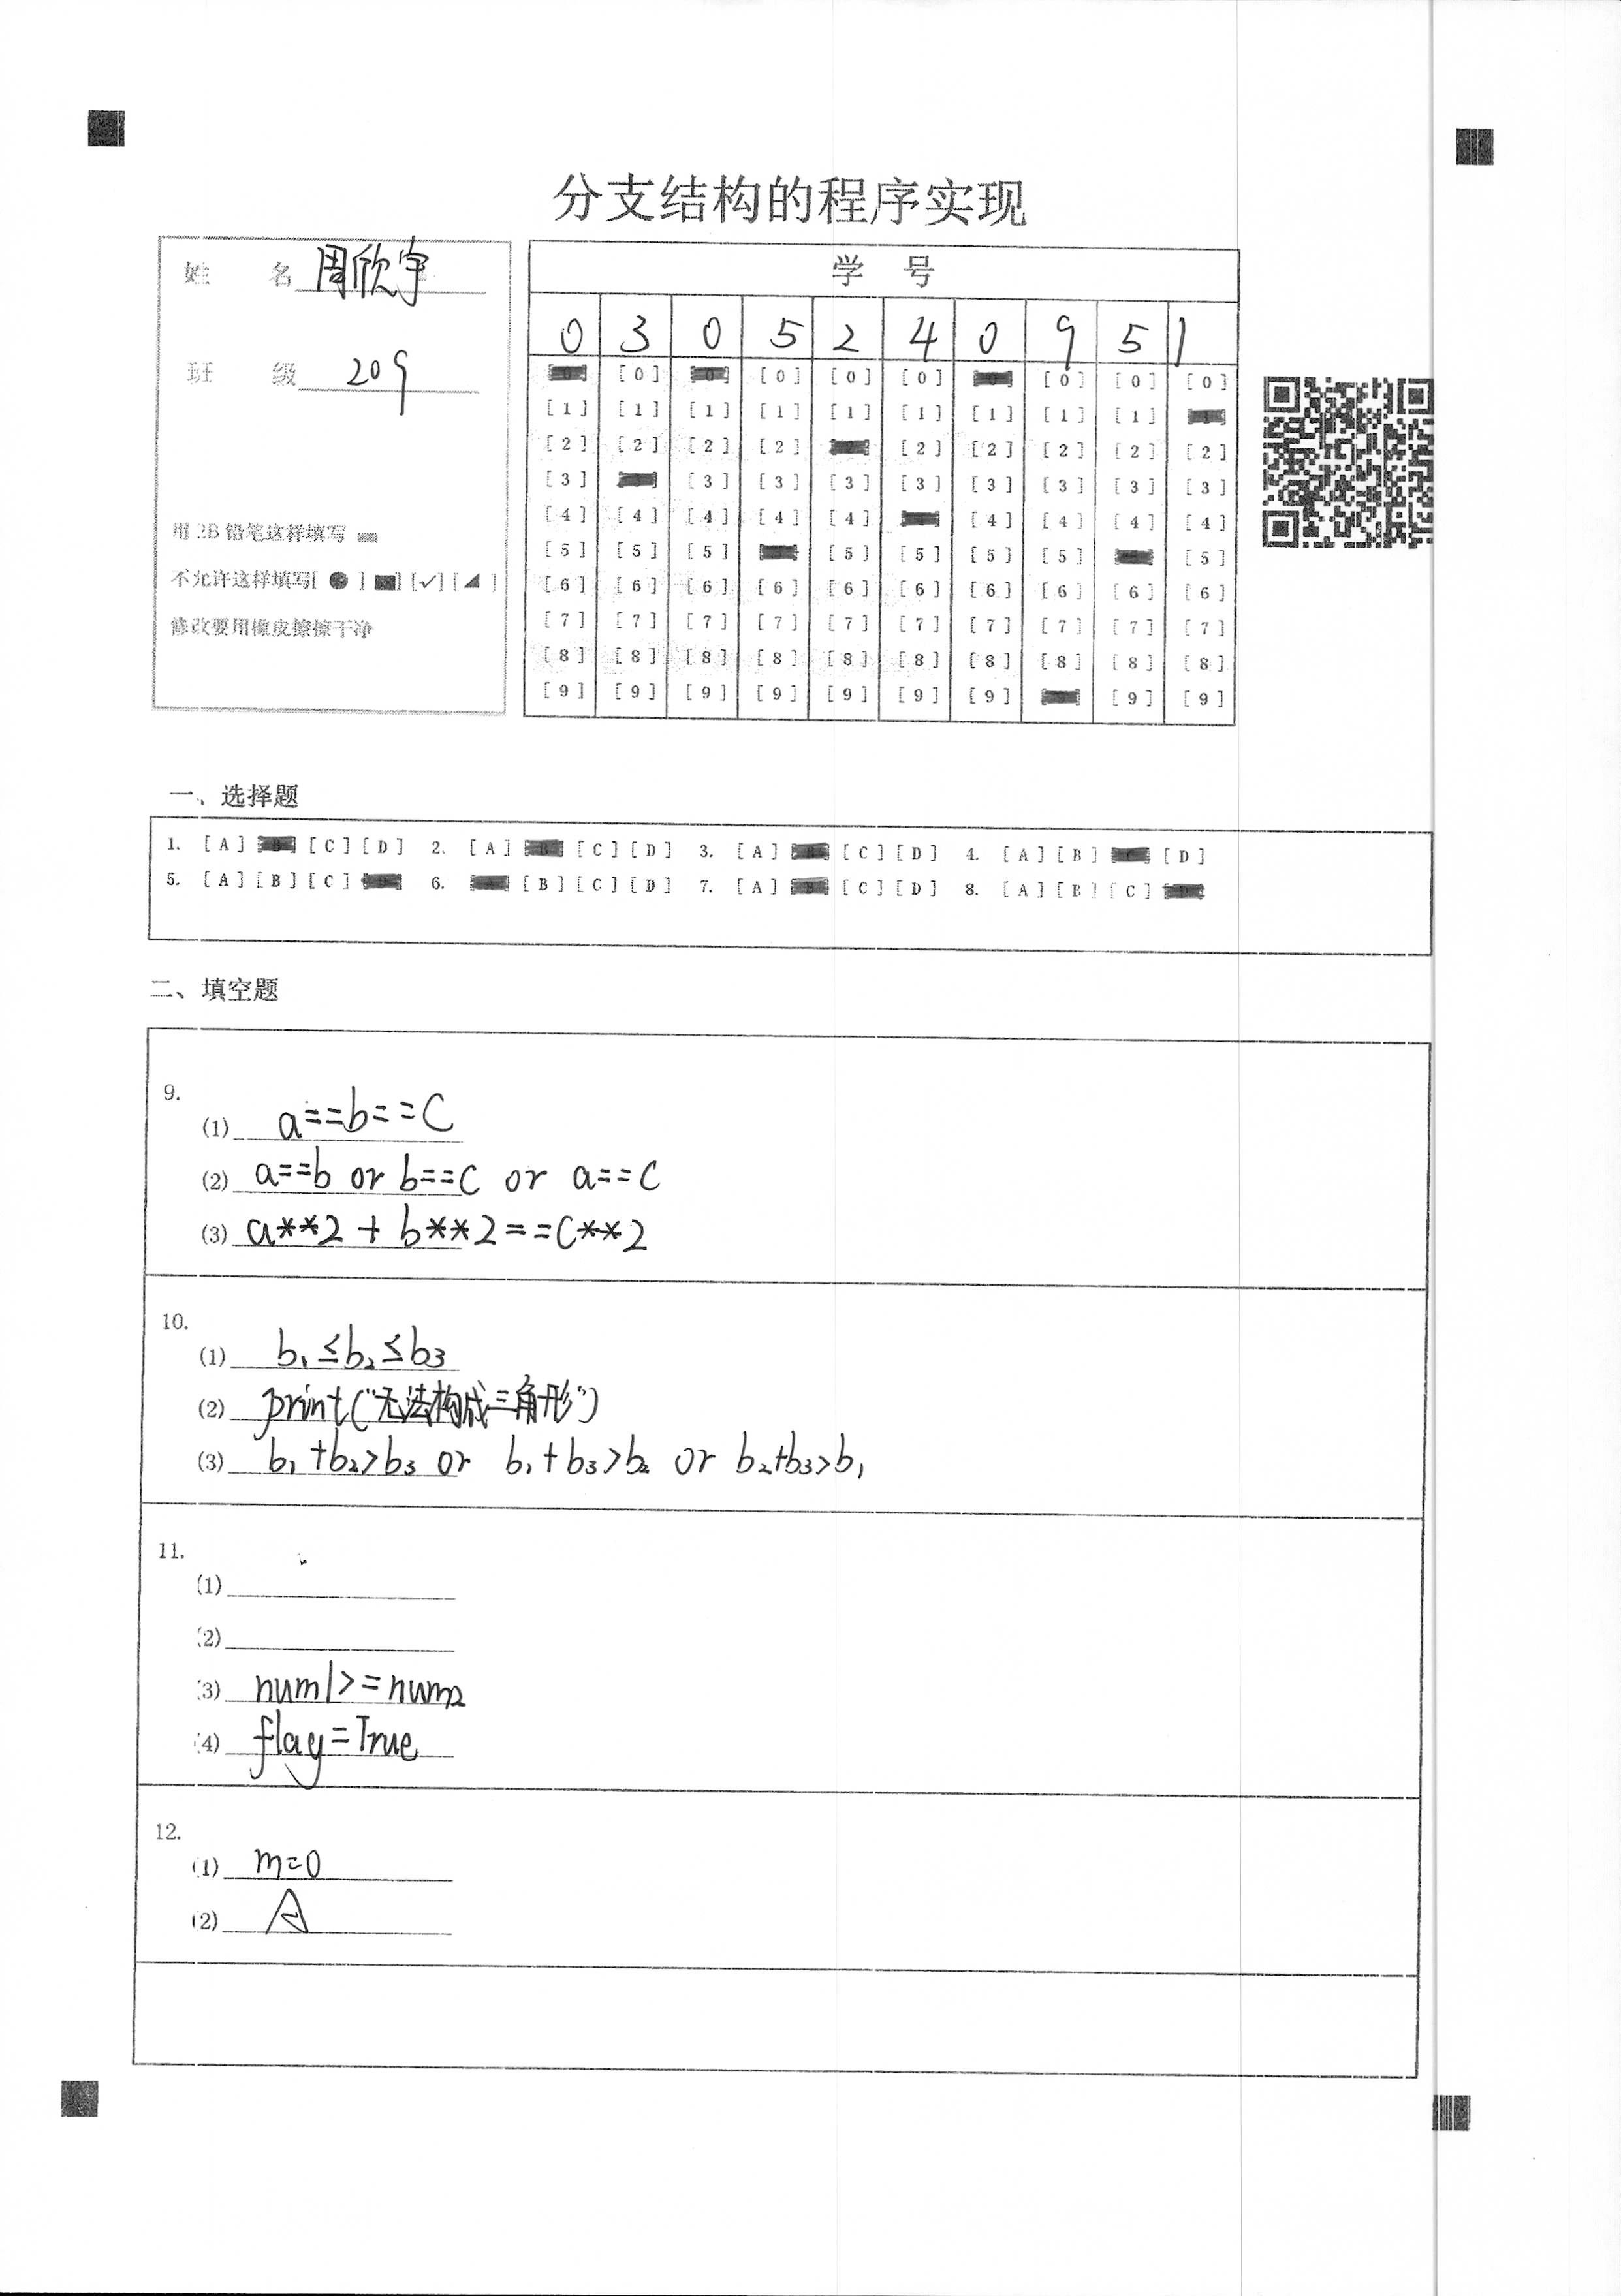 分支结构的程序实现
姓 名 周欣宇
班 级 209
用 2B 铅笔这样填写
不允许这样填写[ ● ] [■] [✓] [◢ ]
修改要用橡皮擦擦干净
学 号
0 3 0 5 2 4 0 9 5 1
[0] [0] [0] [0] [0] [0] [0] [0] [0] [0]
[1] [1] [1] [1] [1] [1] [1] [1] [1]
[2] [2] [2] [2] [2] [2] [2] [2] [2]
[3] [3] [3] [3] [3] [3] [3] [3] [3]
[4] [4] [4] [4] [4] [4] [4] [4] [4]
[5] [5] [5] [5] [5] [5] [5] [5]
[6] [6] [6] [6] [6] [6] [6] [6] [6] [6]
[7] [7] [7] [7] [7] [7] [7] [7] [7] [7]
[8] [8] [8] [8] [8] [8] [8] [8] [8] [8]
[9] [9] [9] [9] [9] [9] [9] [9] [9]
一、选择题
1. [A] [B] [C] [D] 2. [A] [B] [C] [D] 3. [A] [B] [C] [D] 4. [A] [B] [C] [D]
5. [A] [B] [C] [D] 6. [A] [B] [C] [D] 7. [A] [B] [C] [D] 8. [A] [B] [C] [D]
二、填空题
9.
(1) a==b==c
(2) a==b or b==c or a==c
(3) a**2 + b**2==c**2
10.
(1) b₁≤b₂≤b₃
(2) print("无法构成三角形")
(3) b₁+b₂>b₃ or b₁+b₃>b₂ or b₂+b₃>b₁
11.
(1)
(2)
(3) num1>=num2
(4) flay=True
12.
(1) m=0
(2) A